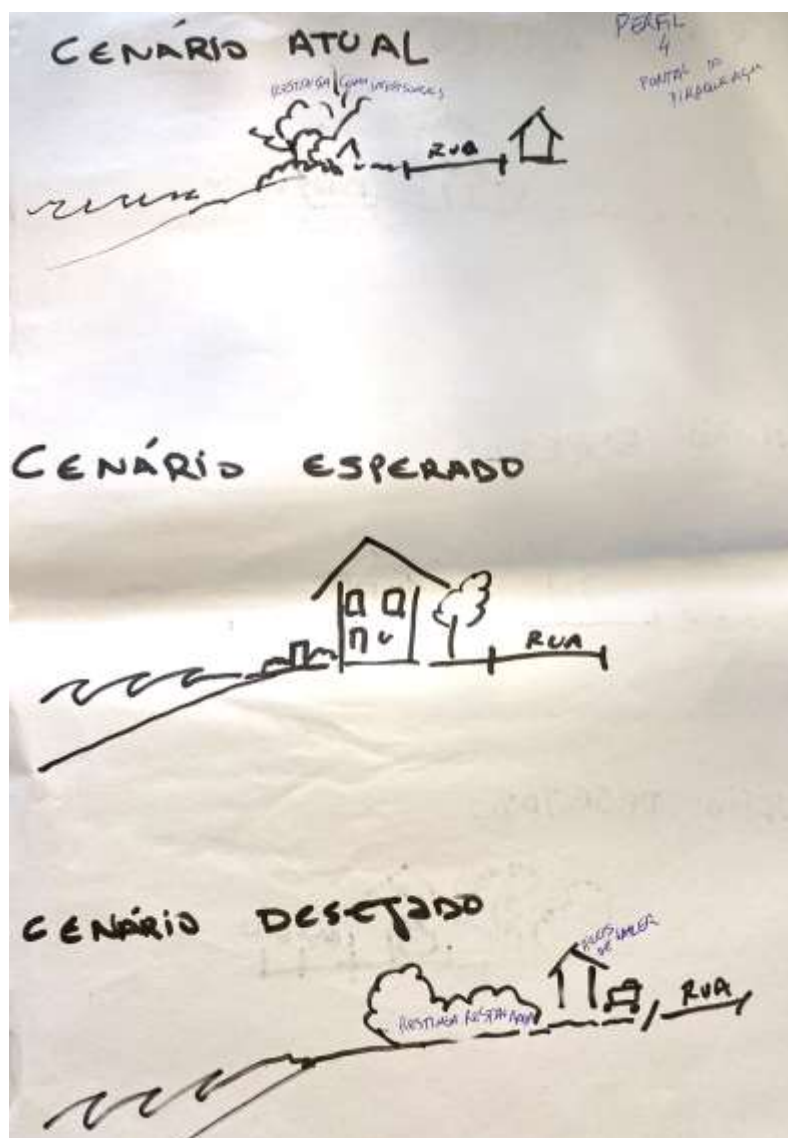 CENÁRIO ATUAL
PERFIL
4
PONTAL DO
PIRAQUEAÇU
RESTINGA COM
RUA
CENÁRIO ESPERADO
RUA
CENÁRIO DESEJADO
DE LAZER
RUA
RESTINGA RESTAURADA